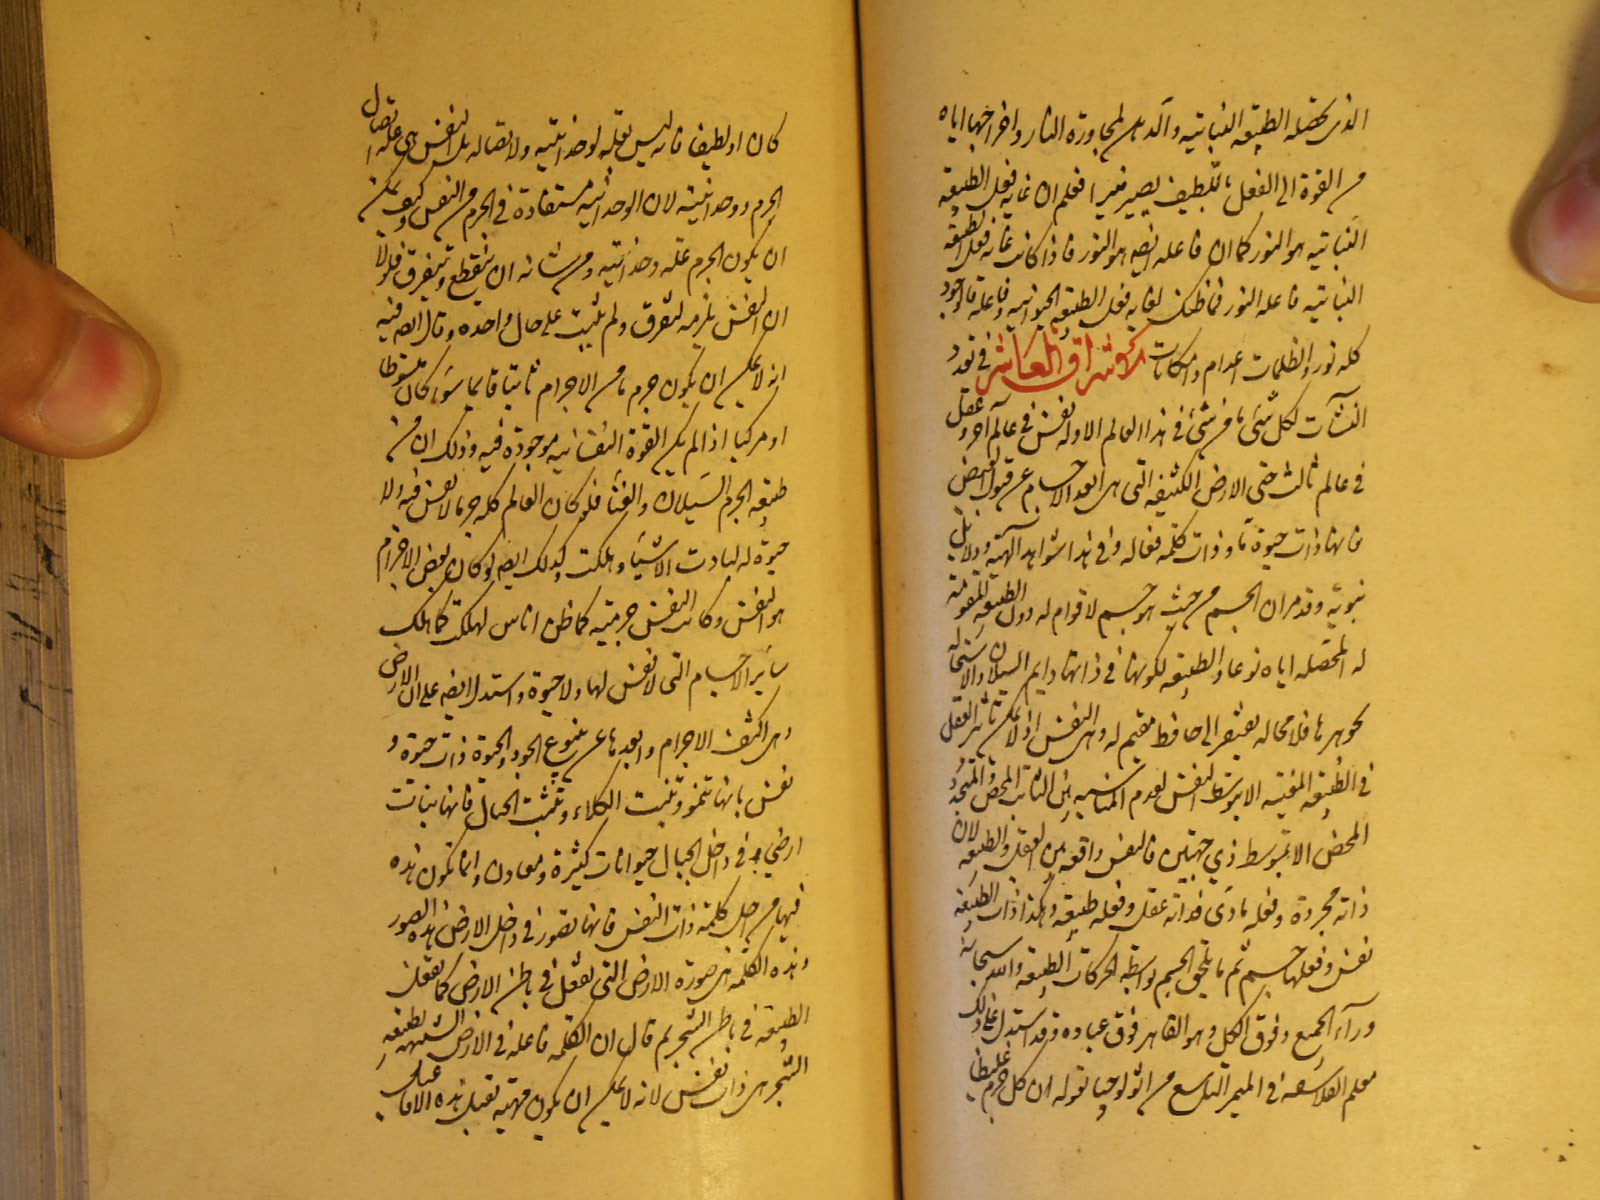 الذى تحصله الطبيعه النباتيه والدهن لمجاورة النار واخراجها اياه
من القوة الى الفعل بتلطيف يصير منيرا فعلم ان غاية فعل الطبيعه
النباتيه هو النور كما ان فاعله ايضه هو النور فاذا كانت غاية فعل الطبيعه
النباتيه فاعله النور فما ظنك لغاية فعل الطبيعه الحيوانيه وفاعله فالوجود
كله نور والظلمات اعدام وامكانات الاشراق العاشر فى تعدد
النشآت لكل شئ ما من شئ فى هذا العالم الا وله نفس فى عالم آخر وعقل
فى عالم ثالث حتى الارض الكثيفه التى هى ابعد الاجسام عن قبول الفيض
فانها ذات حيوة ما وذات كلمة فعاله وفى هذا شواهد آلهية ودلائل
نبويه وقد مر ان الجسم من حيث هو جسم لا قوام له دون الطبيعه المقومة
له المحصله اياه نوعا والطبيعه لكونها فى ذاتها دايم السيلان والاستحاله
بجوهرها فلا محاله يفتقر الى حافظ مقيم له وهى النفس اذ لا يمكن تاثير العقل
فى الطبيعه المفنيه الا بتوسط النفس لعدم المناسبه بين الثابت المحض والمتجدد
المحض الا بمتوسط ذي جهتين فالنفس واقعه بين العقل والطبيعه لان
ذاته مجردة وفعله مادى فذاته عقل وفعله طبيعه وهكذا ذات الطبيعه
نفس وفعلها جسم ثم ما يلحق الجسم بواسطة الحركات الطبيعه والله سبحانه
ورآء الجميع وفوق الكل وهو القاهر فوق عباده وقد استدل على ذلك
معلم الفلاسفه فى الميمر التاسع من اثولوجيا بقوله ان كل جرم غليظا
كان او لطيفا فانه ليس بعلة لوحدانيته ولا اتصاله بل النفس هى علة اتصال
الجرم ووحدانيته لان الوحدانيه مستفادة فى الجرم من النفس وكيف يمكن
ان يكون الجرم علة وحدانيته ومن شانه ان يتقطع ويتفرق فلولا
ان النفس يلزمه لتفرق ولم يثبت على حال واحده وقال ايضه فيه
انه لا يمكن ان يكون جرم ما من الاجرام ثابتا قايما سواء كان مبسوطا
او مركبا اذا لم يكن القوة النفسانيه موجودة فيه وذلك ان من
طبيعه الجرم السيلان والفنا فلو كان العالم كله جرما لا نفس فيه ولا
حيوة له لبادت الاشيآ وهلكت وكذلك ايضه لو كان بعض الاجرام
هو النفس وكانت النفس جرميته كما ظن اناس لهلكت كما هلك
ساير الاجسام التى لا نفس لها ولا حيوة واستدل ايضه على ان الارض
وهى اكثف الاجرام وابعدها عن ينبوع الجود والحيوة ذات حيوة و
نفس بانها تنمو وتنبت الكلاء وتنبت الجبال فانها نبات
ارضي و فى داخل الجبال حيوانات كثيرة ومعادن وانما تكون هذه
فيها من اجل كلمة ذات النفس فانها تصور فى داخل الارض هذه الصور
وهذه الكلمه هى صورة الارض التى تفعل فى باطن الارض كما تفعل
الطبيعه فى باطن الشجر ثم قال ان الكلمه فاعله فى الارض الشبيهه لطبيعه
الشجر هى ذات نفس لانه لا يمكن ان يكون ميته تفعل هذه الافاعيل